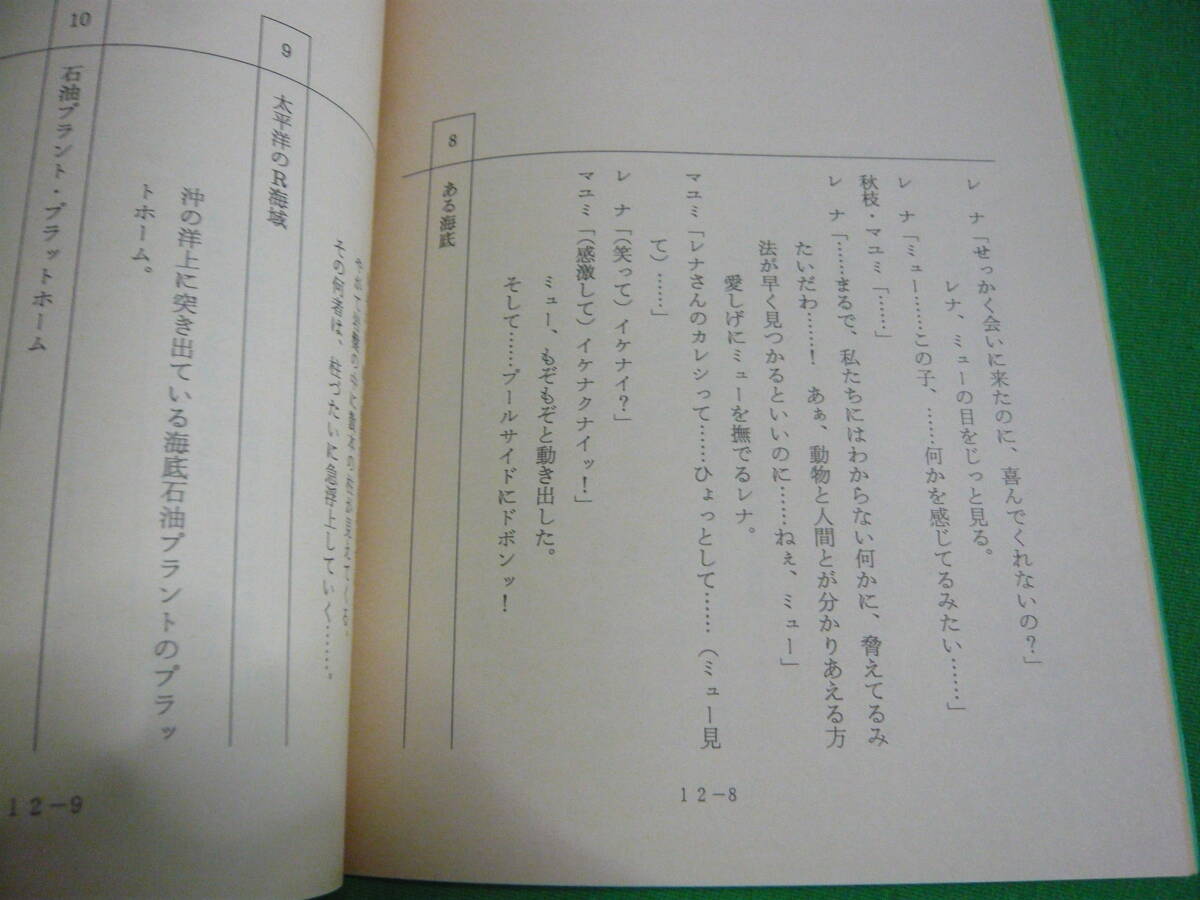 レ ナ「せっかく会いに来たのに、喜んでくれないの？」
レナ、ミューの目をじっと見る。
レ ナ「ミュー……この子、……何かを感じてるみたい……」
秋枝・マユミ「……」
レ ナ「……まるで、私たちにはわからない何かに、脅えてるみ
たいだわ……！ あぁ、動物と人間とが分かりあえる方
法が早く見つかるといいのに……ねぇ、ミュー」
愛しげにミューを撫でるレナ。
マユミ「レナさんのカレシって……ひょっとして……（ミュー見
て）……」
レ ナ「（笑って）イケナイ？」
マユミ「（感激して）イケナクナイッ！」
ミュー、もぞもぞと動き出した。
そして……プールサイドにドボンッ！
8 ある海底
12-8
その何者は、柱づたいに急浮上していく……。
9 太平洋のR海域
沖の洋上に突き出ている海底石油プラントのプラッ
トホーム。
10 石油プラント・プラットホーム
12-9